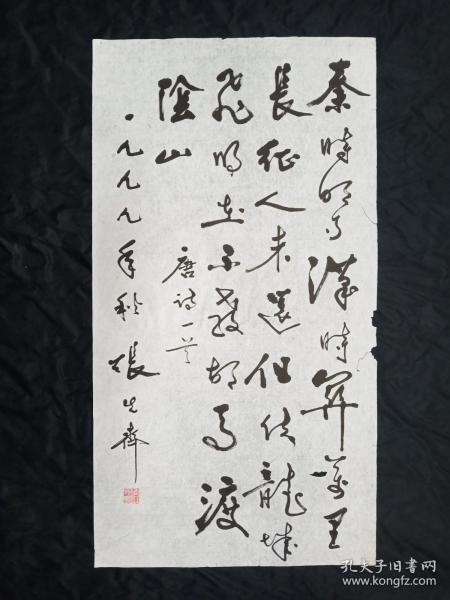 秦時明月漢時關萬里
長征人未還但使龍城
飛將在不教胡馬渡
陰山
唐詩一首
一九九九年秋 張
孔夫子旧书网
www.kongfz.com